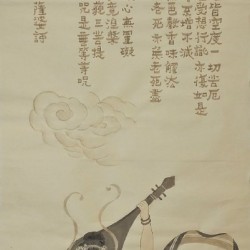 皆空度一切苦厄
受想行識亦復如是
不增不減
色聲香味觸法
老死亦無老死盡
心無罣礙
竟涅槃
藐三菩提
咒是無等等咒
薩婆訶